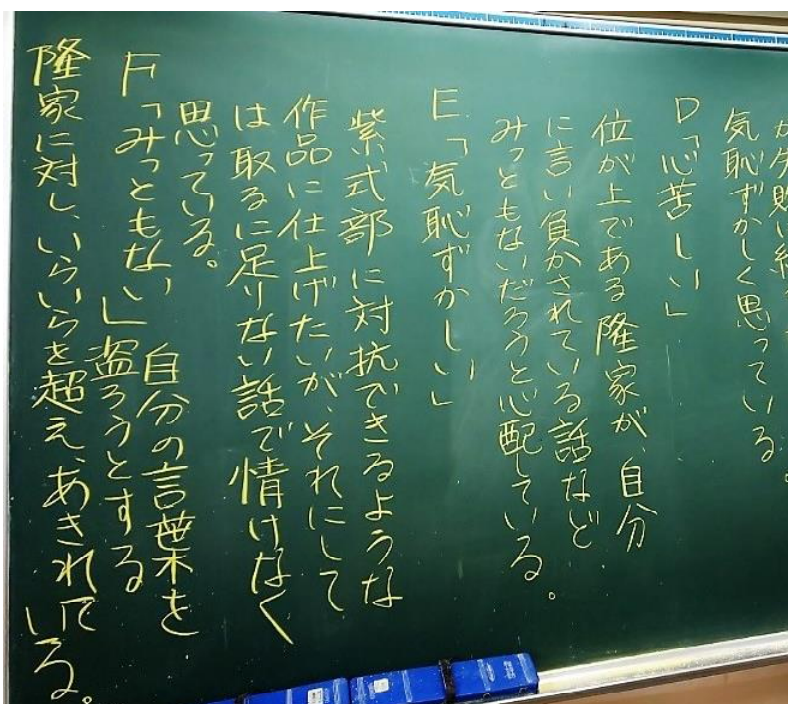 が失敗に終
気恥ずかしく思っている。
D「心苦しい」
位が上である隆家が、自分
に言い負かされている話など
みっともないだろうと心配している。
E「気恥ずかしい」
紫式部に対抗できるような
作品に仕上げたいが、それにして
は取るに足りない話で情けなく
思っている。
F「みっともない」自分の言葉を
盗ろうとする
隆家に対し、いらいらを超え、あきれている。